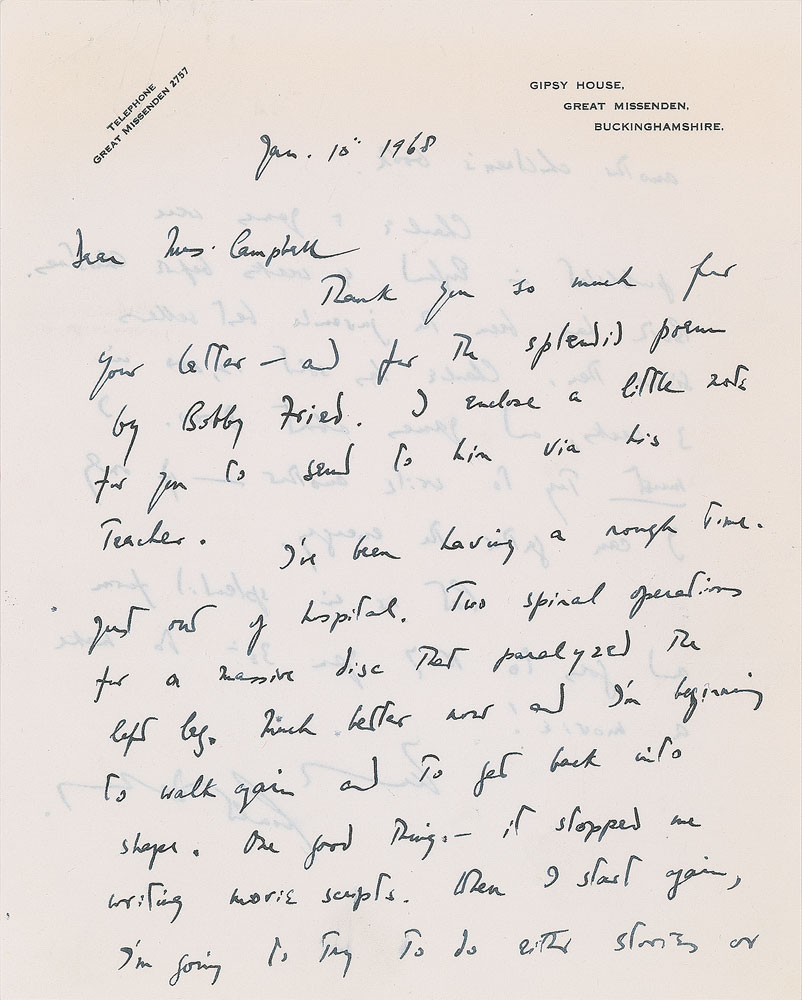 TELEPHONE
GREAT MISSENDEN 2757
GIPSY HOUSE,
GREAT MISSENDEN,
BUCKINGHAMSHIRE.
Jan. 10th 1968
Dear Mrs. Campbell
Thank you so much for
your letter — and for the splendid poem
by Bobby Fried. I enclose a little note
for you to send to him via his
Teacher.
I've been having a rough time.
Just out of hospital. Two spinal operations
for a massive disc that paralyzed the
left leg. Much better now and I'm beginning
to walk again and to get back into
shape. One good thing. — it stopped me
writing movie scripts. When I start again,
I'm going to try to do either stories or